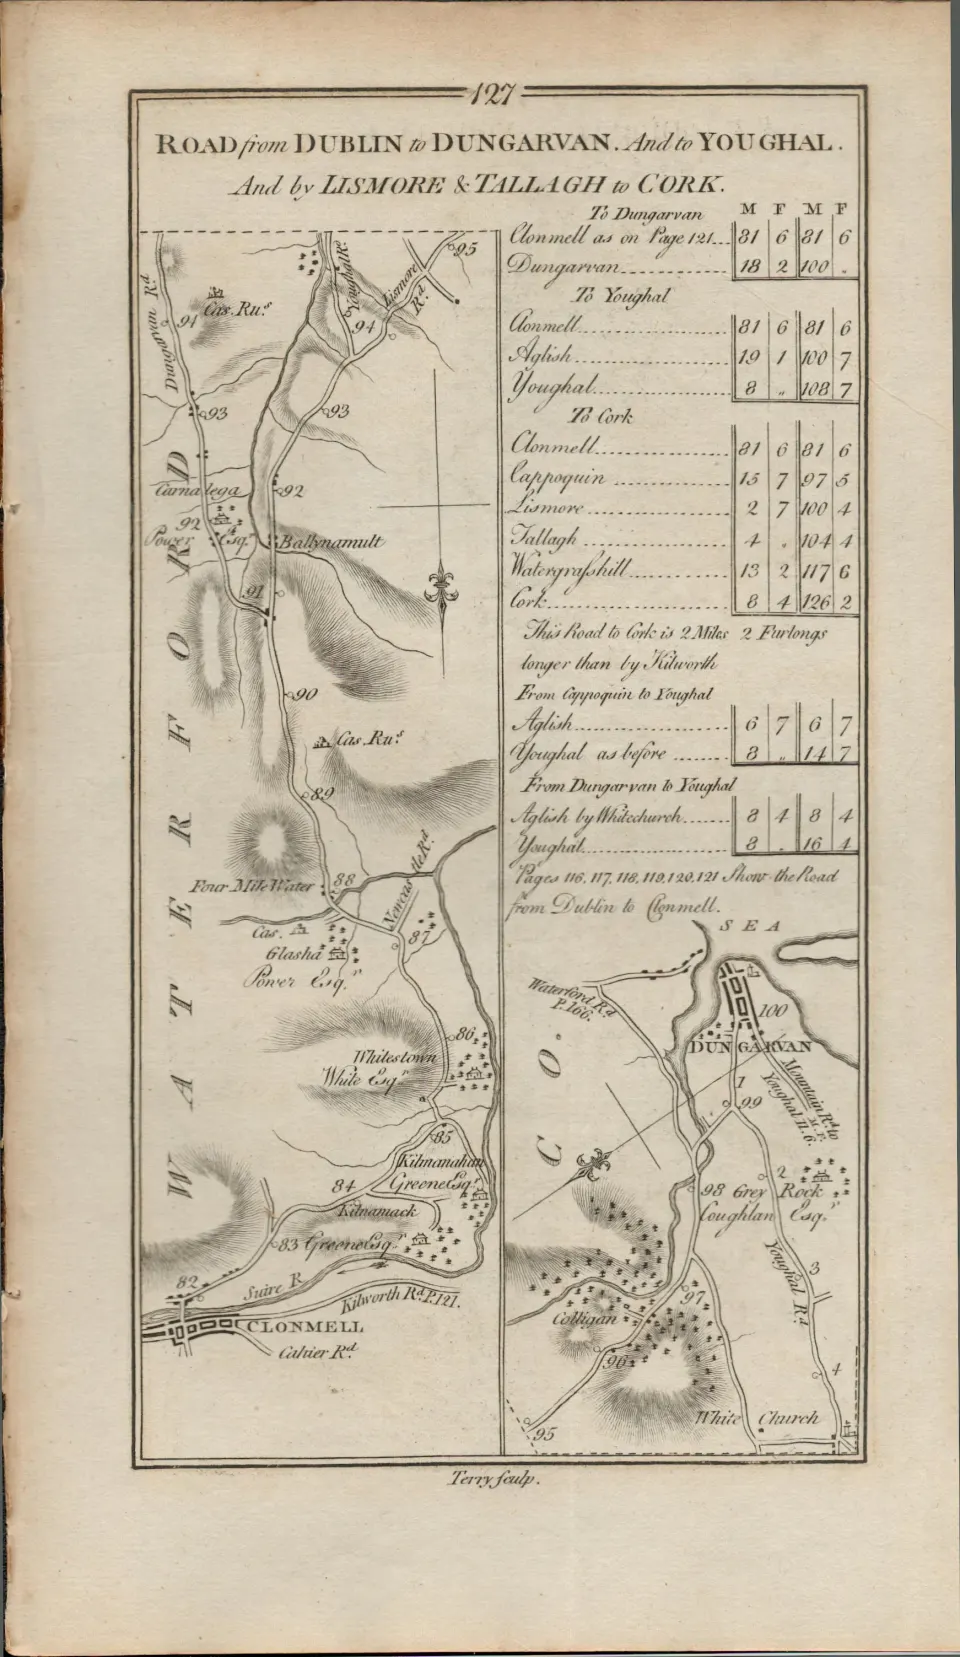 127
ROAD from DUBLIN to DUNGARVAN. And to YOUGHAL.
And by LISMORE & TALLAGH to CORK.
To Dungarvan M F M F
Clonmell as on Page 121... 81 6 81 6
Dungarvan 18 2 100 .
To Youghal
Clonmell 81 6 81 6
Aglish 19 1 100 7
Youghal 8 „ 108 7
To Cork
Clonmell 81 6 81 6
Cappoquin 15 7 97 5
Lismore 2 7 100 4
Tallagh 4 . 104 4
Watergraſshill 13 2 117 6
Cork 8 4 126 2
This Road to Cork is 2 Miles 2 Furlongs
longer than by Kilworth
From Cappoquin to Youghal
Aglish 6 7 6 7
Youghal as before 8 „ 14 7
From Dungarvan to Youghal
Aglish by Whitechurch 8 4 8 4
Youghal 8 . 16 4
Pages 116, 117, 118, 119, 120, 121 Show the Road
from Dublin to Clonmell.
Dungarvan Rd
Youghal Rd.
Lismore Rd.
95
94
Cas. Ru.s
94
93
93
Carnalega
92
92
Power Esqr.
Ballynamult
91
90
Cas. Ru.s
89
Newcastle Rd.
Four Mile Water
88
Cas.
87
Glasha
Power Esqr.
86
Whitestown
White Esqr.
85
Kilmanahan
Greene Esqr.
84
Kilnamack
83
Greene Esqr.
82
Suire R.
Kilworth Rd. P. 121.
CLONMELL
Cahier Rd.
WATERFORD
SEA
Waterford Rd.
P. 166.
100
DUNGARVAN
CO.
1
99
Mountain Rd. to
Youghal 11. 6.
M. F.
2
98
Grey Rock
Coughlan Esqr.
Youghal Rd.
3
97
Colligan
96
4
95
White Church
Terry ſculp.